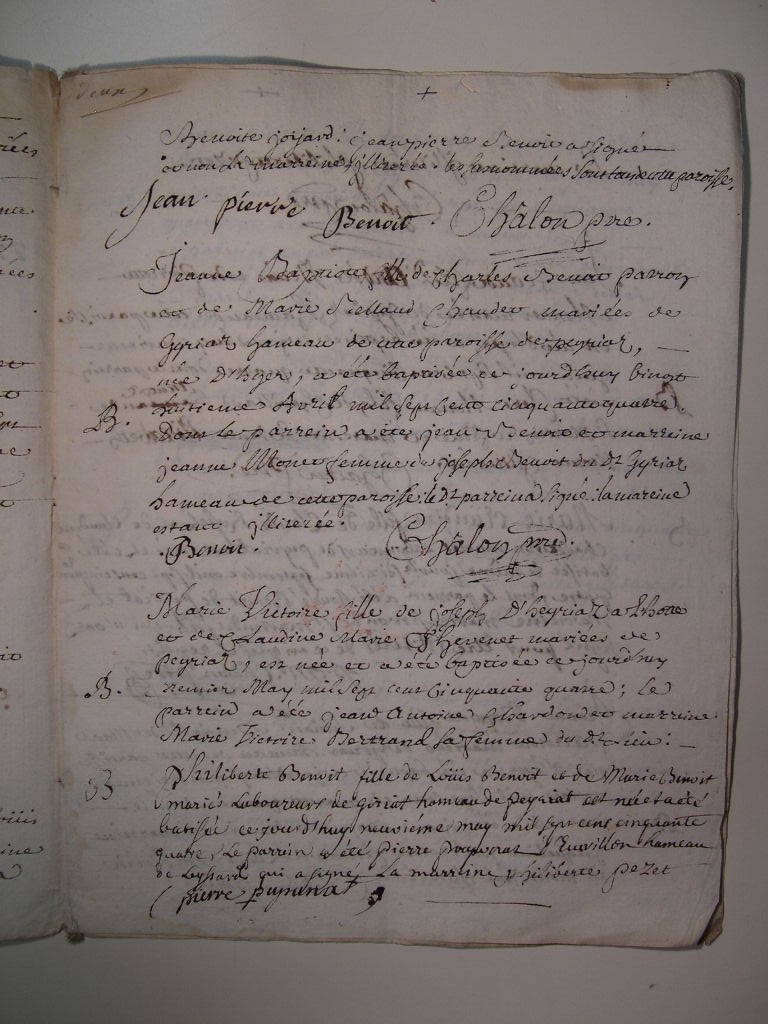 deux
Benoite joijard: jean pierre Benoit a signé
et non la marreine illiterée. les surnommées sont tous de cette paroisse.
Jean pierre Benoit. Châlon pre.
Jeanne Baptiste fille de Charles Benoit parron
et de Marie Chaudet mariées de
Gyriaz hameau de cette paroisse de peyriaz,
née D'hyer, a été baptisée ce jourdhuy vingt
B. huitieme Avril mil sept cent cinquante quatre.
Dont le parrein a etez jean Benoit et marreine
jeanne Monet femme de joseph Benoit du Dt Gyriaz
hameau de cette paroisse. le Dt parrein a signé: la mareine
estant illiterée.
Benoit. Châlon pre.
Marie Victoire fille de joseph D'heyriaz
et de Claudine Marie Thevenet mariées de
Peyriaz, est née et a été baptisée ce jourdhuy
B. premier May mil sept cent cinquante quatre; le
parrein a été jean Antoine Chardon et marreine
Marie Victoire Bertrand sa femme du Dt lieu:
B philiberte Benoit fille de Loüis Benoit et de Marie Benoit
mariés Laboureurs de giriat hameau de Peyriat est née et a été
batisée ce jourdhuy neuvième may mil sept cent cinquante
quatre, Le parrin a été pierre hameau
de Leyssard qui a signé La marrine philiberte pezet
pierre pupunat